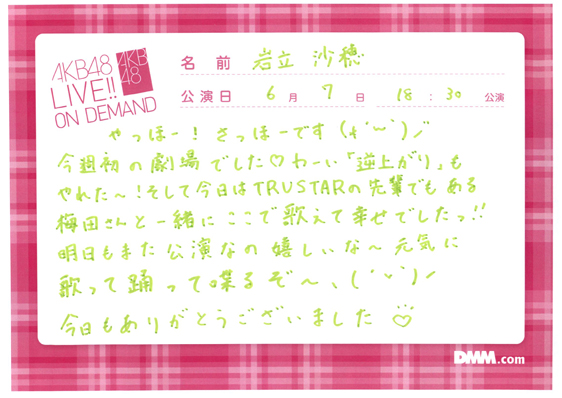 AKB48
LIVE!!
ON DEMAND
AKB
48
名前 岩立 沙穂
公演日 6月 7日 18:30 公演
やっほー！さっほーです(*´ー`)ノ
今週初の劇場でした♡わーい「逆上がり」も
やれた〜！そして今日はTRUSTARの先輩でもある
梅田さんと一緒にここで歌えて幸せでしたっ!!
明日もまた公演なの嬉しいな〜元気に
歌って踊って喋るぞ〜、(´ｰ`)ノ
今日もありがとうございました♡
DMM.com